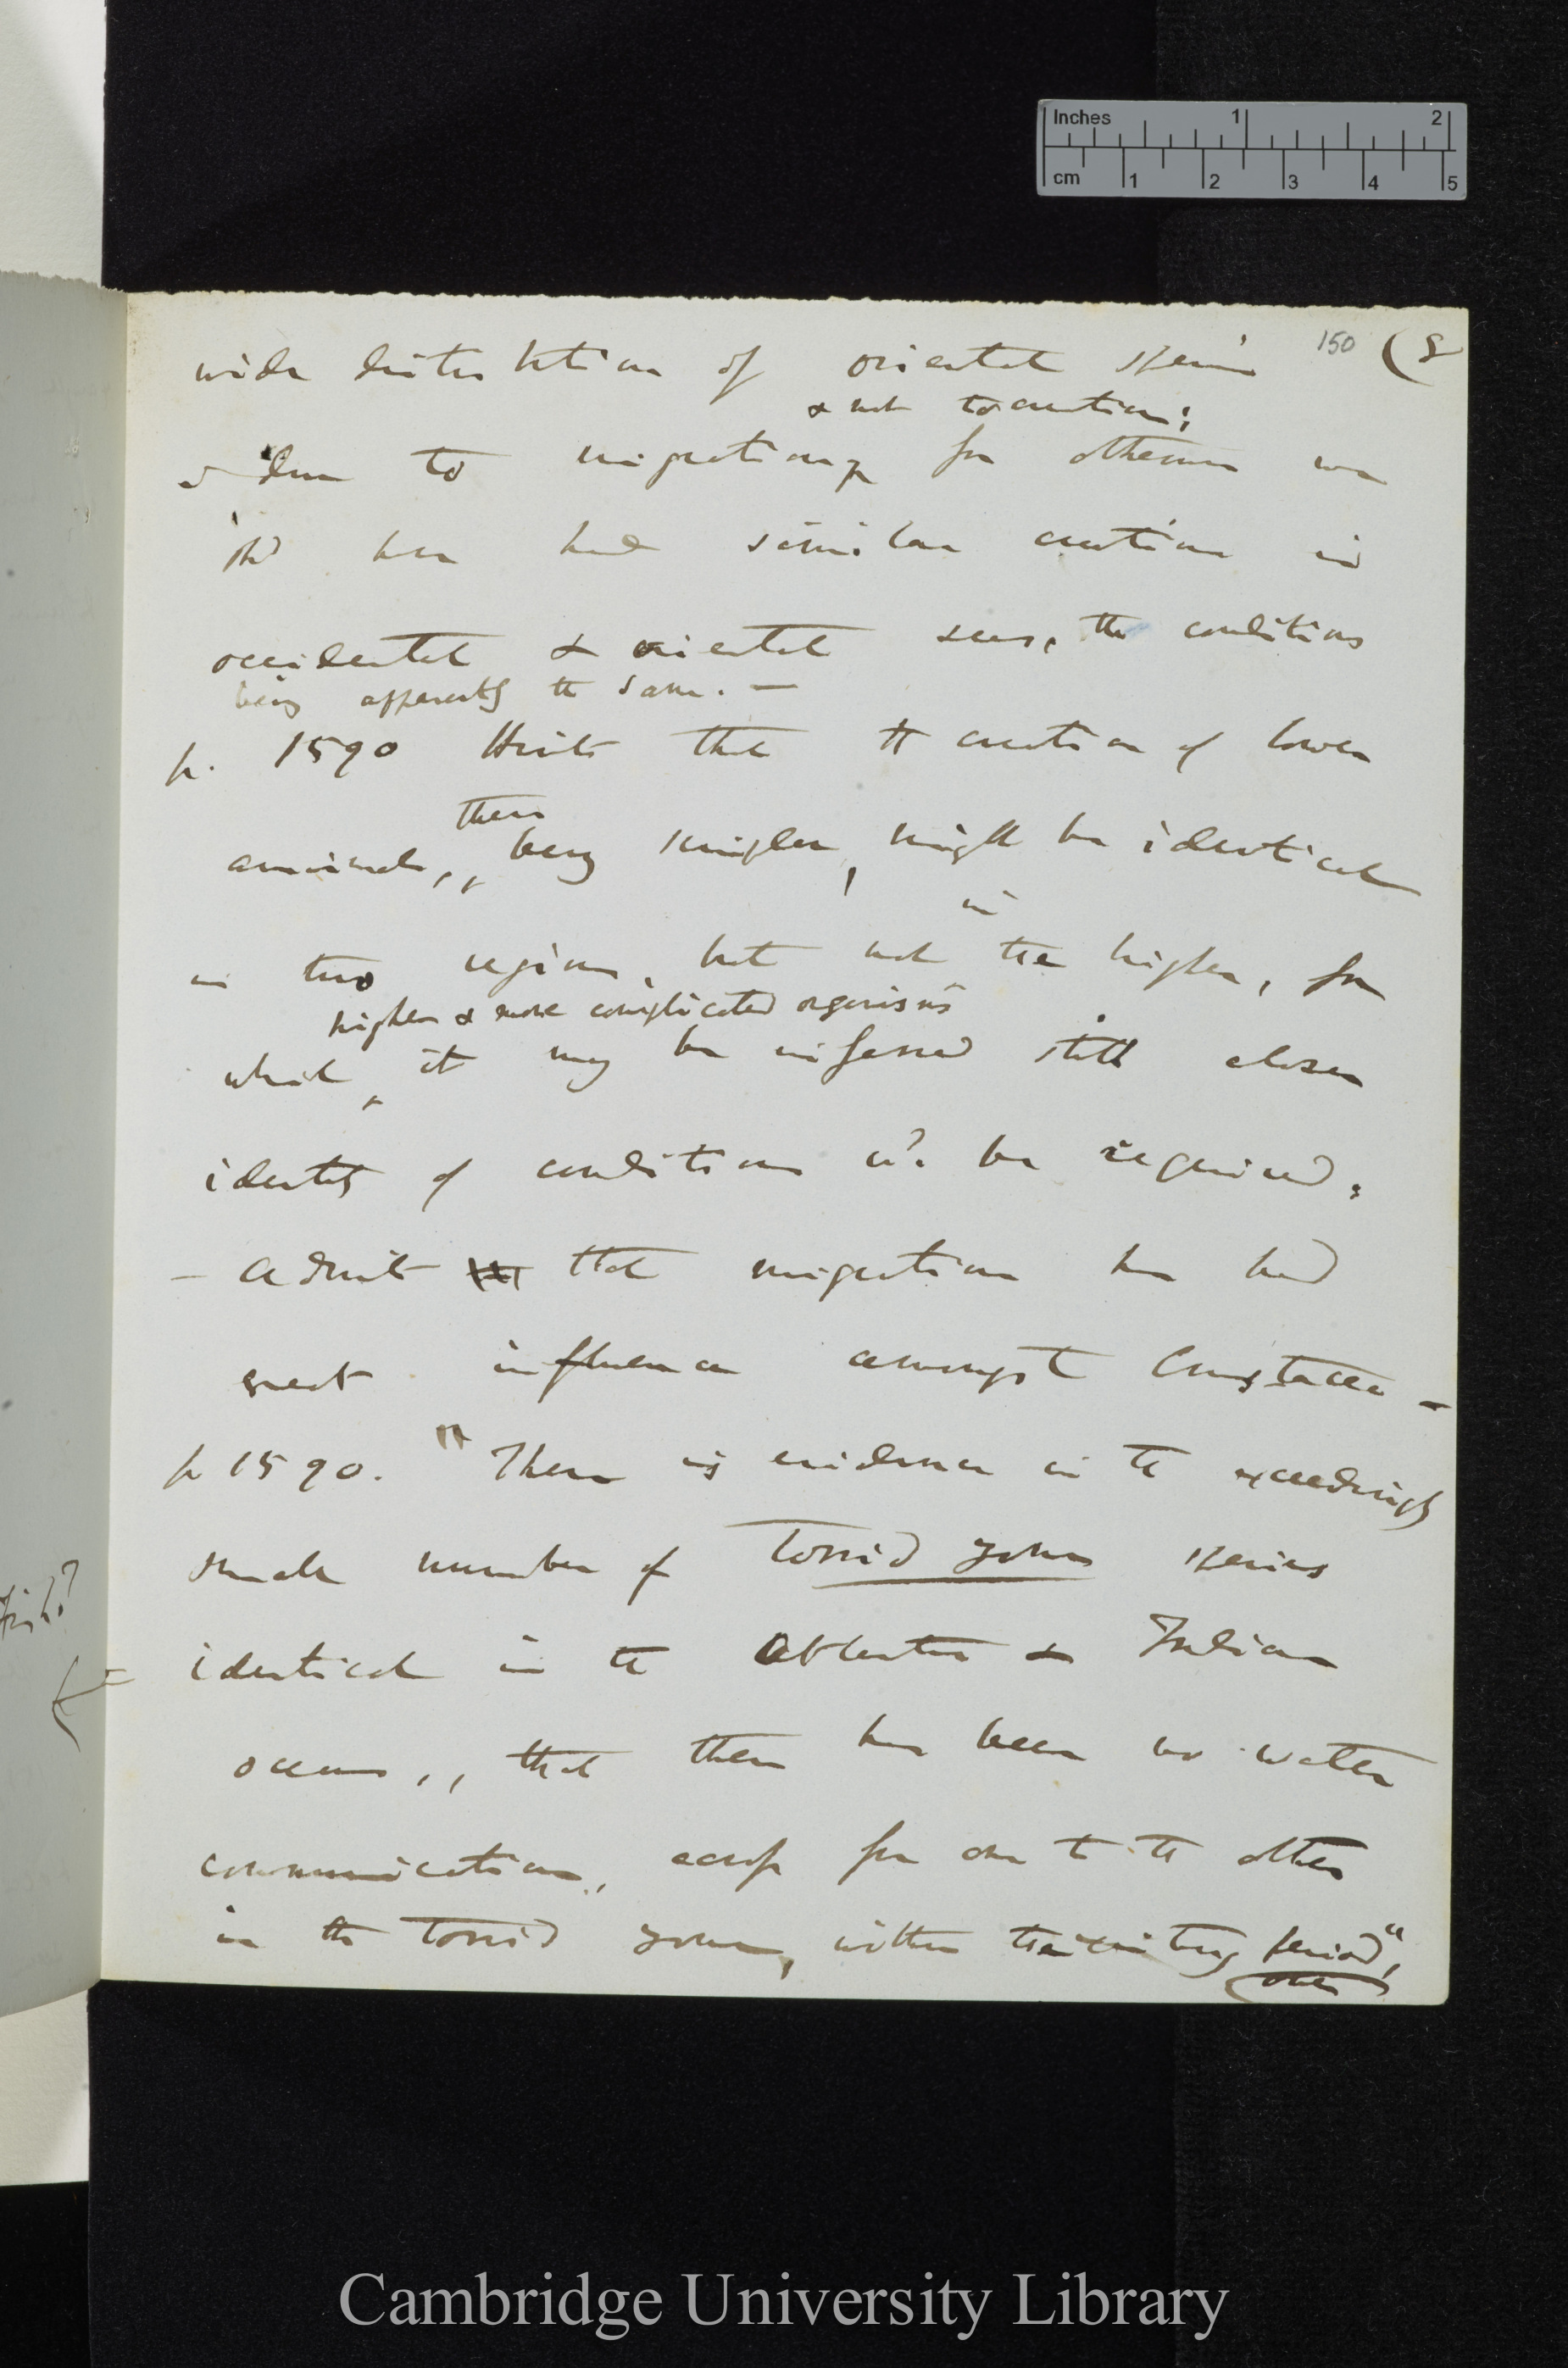 Inches 1 2
cm 1 2 3 4 5
150 (8
wide distribution of oriental species
& not to creation;
is due to migration, for otherwise we
shd have had similar creation in
occidental & oriental seas, the conditions
being apparently the same. —
p. 1590 Hints that the creation of lower
these
animals, being simpler, might be identical
in
in two regions, but not the higher, for
higher & more complicated organisms
which it may be inferred still closer
identity of conditions wd. be required.
— Admits that migration has had
great influence amongst Crustacea —
p 1590. "There is evidence in the exceedingly
small number of torrid zone species
identical in the Atlantic & Indian
oceans,, that there has been no water
communication, across from one to the other
in the torrid zone, within the existing period",
over
Fish?
Cambridge University Library